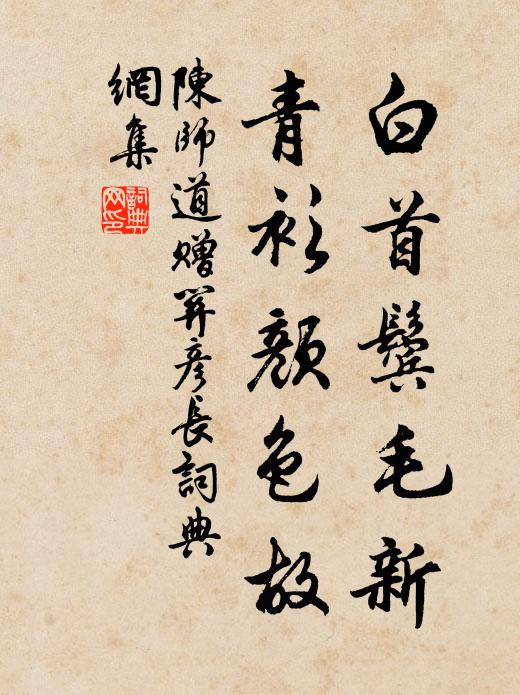 白首鬢毛新
青衫顔色故
陳師道贈
彦長詞典
網集
詞典網印